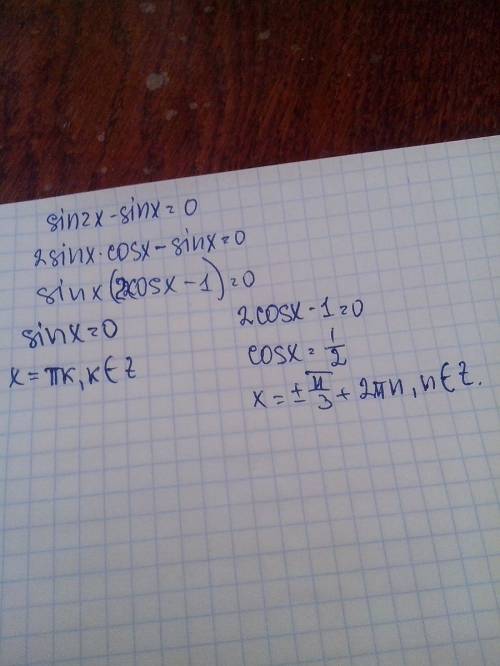 sin2x - sinx = 0
2sinx · cosx - sinx = 0
sinx (2cosx - 1) = 0
sinx = 0
x = πk, k ∈ Z
2cosx - 1 = 0
cosx = 1/2
x = ± π/3 + 2πn, n ∈ Z.